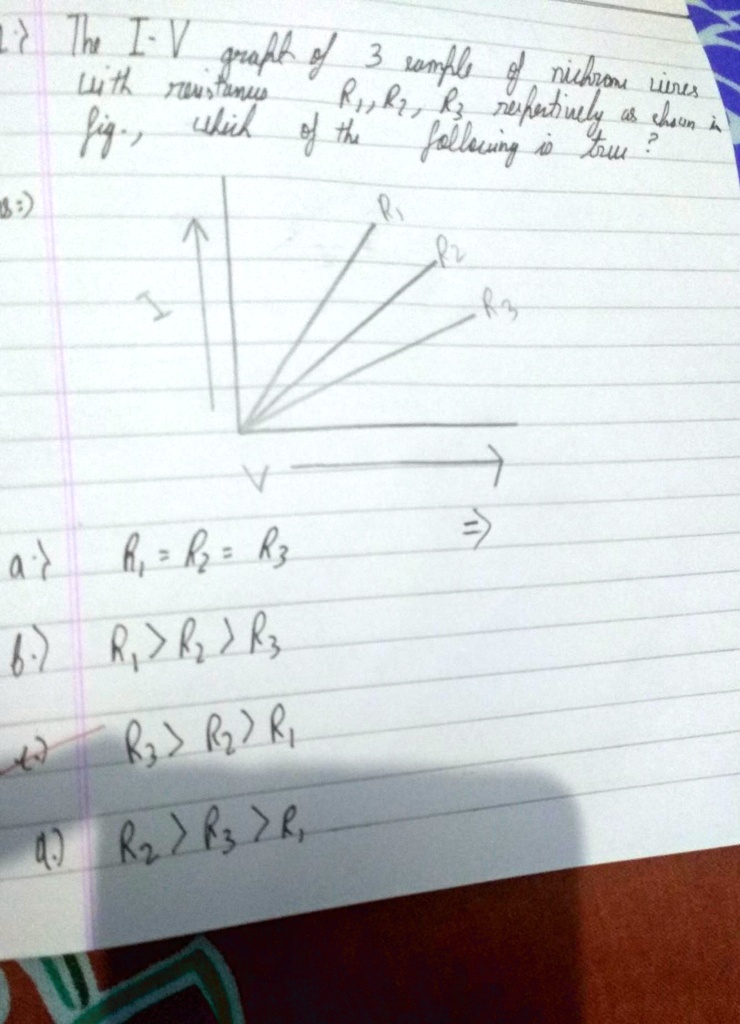 The I-V graph of 3 sample of nichrome wires
with resistances R1, R2, R3 respectively as shown in
fig., which of the following is true?
s:)
R1
R2
R3
I
V
⇒
a.) R1 = R2 = R3
b.) R1 > R2 > R3
c.) R3 > R2 > R1
d.) R2 > R3 > R1